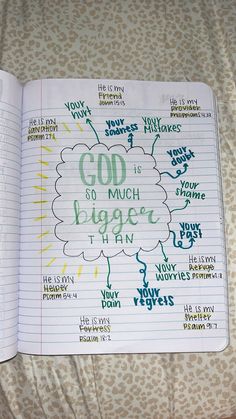 He is my
Friend
John 15:15
He is my
Provider
Philippians 4:19
He is my
Salvation
Psalm 27:1
YOUR
HURT
YOUR
SADNESS
YOUR
MISTAKES
YOUR
DOUBT
YOUR
SHAME
YOUR
PAST
GOD is
SO MUCH
bigger
THAN
YOUR
WORRIES
YOUR
PAIN
YOUR
REGRETS
He is my
Helper
Psalm 54:4
He is my
Refuge
He is my
Fortress
Psalm 18:2
He is my
Shelter
Psalm 91:1